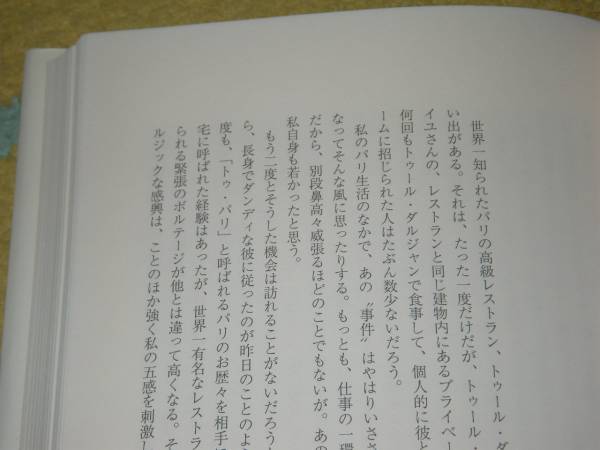 世界一知られたパリの高級レストラン、トゥール・ダ
い出がある。それは、たった一度だけだが、トゥール・
イユさんの、レストランと同じ建物内にあるプライベー
何回もトゥール・ダルジャンで食事して、個人的に彼と
ームに招じられた人はたぶん数少ないだろう。
私のパリ生活のなかで、あの〝事件〞はやはりいささ
なってそんな風に思ったりする。もっとも、仕事の一環
だから、別段鼻高々威張るほどのことでもないが。あの
私自身も若かったと思う。
もう二度とそうした機会は訪れることがないだろう
ら、長身でダンディな彼に従ったのが昨日のことのよう
度も、「トゥ・パリ」と呼ばれるパリのお歴々を相手
宅に呼ばれた経験はあったが、世界一有名なレストラ
られる緊張のボルテージが他とは違って高くなる。そ
ルジックな感興は、ことのほか強く私の五感を刺激し